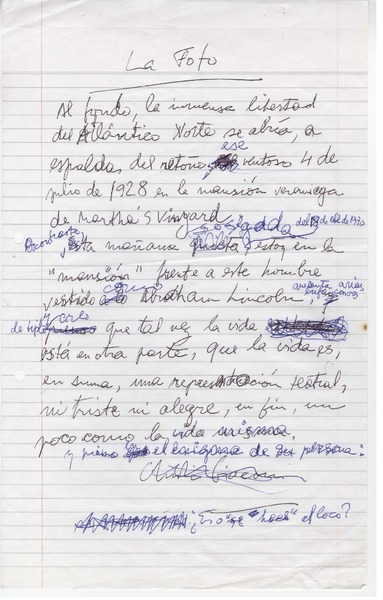 La Foto
Al fondo, la inmensa libertad
del Atlántico Norte se abría, a
ese
espaldas del retoño, ventoso 4 de
julio de 1928 en la mansión veraniega
de Martha's Vinyard.
sosegada del de 1970
esta mañana quieta, estoy en la
"mansión" frente a este hombre
vestido como Abraham Lincoln,
que tal vez la vida
está en otra parte, que la vida es,
en suma, una representación teatral,
ni triste ni alegre, en fin, un
poco como la vida misma.
y pienso el enigma de ser persona:
¿Eso se "hace" el loco?